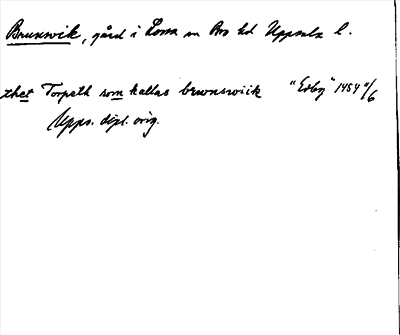 Brunswik, gård i Lossa sn Bro hd Uppsala l.
thet Torpeth som kallas brwnswiik "Ecby" 1454 4/6
Upps. dipl. orig.